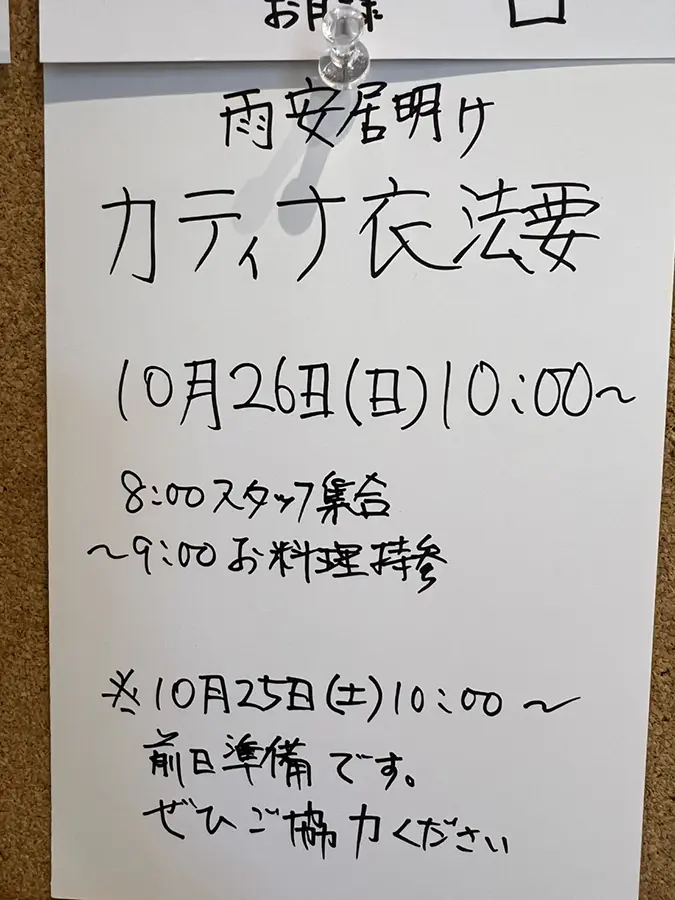 お月様
雨安居明け
カティナ衣法要
10月26日(日)10:00〜
8:00スタッフ集合
〜9:00お料理持参
※10月25日(土)10:00〜
前日準備です。
ぜひご協力ください